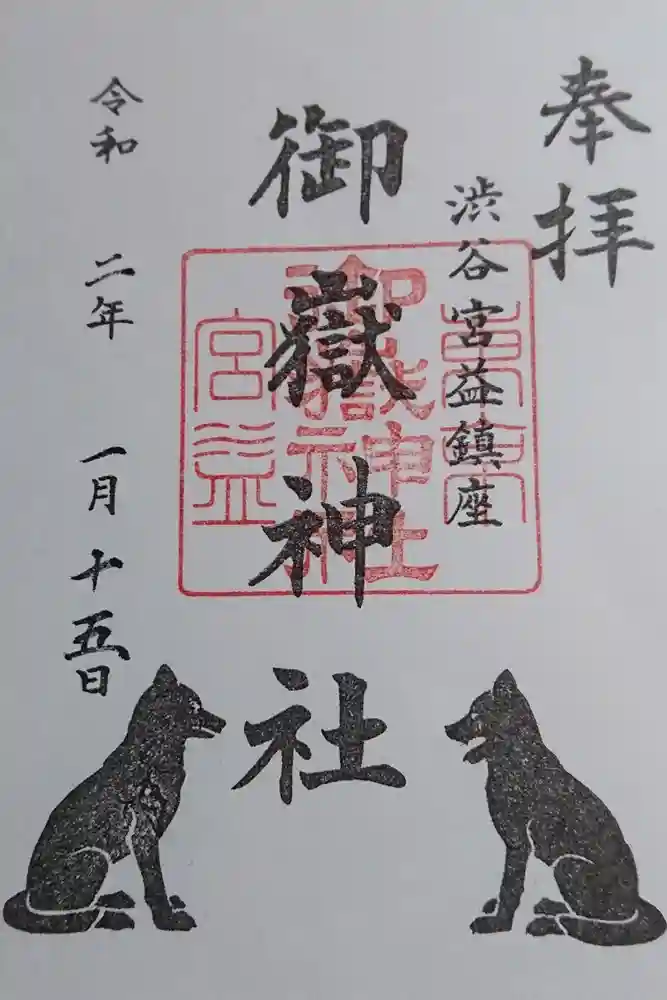 奉拝
渋谷宮益鎮座
御嶽神社
東京
御嶽神社
宮益
令和 二年 一月 十五日